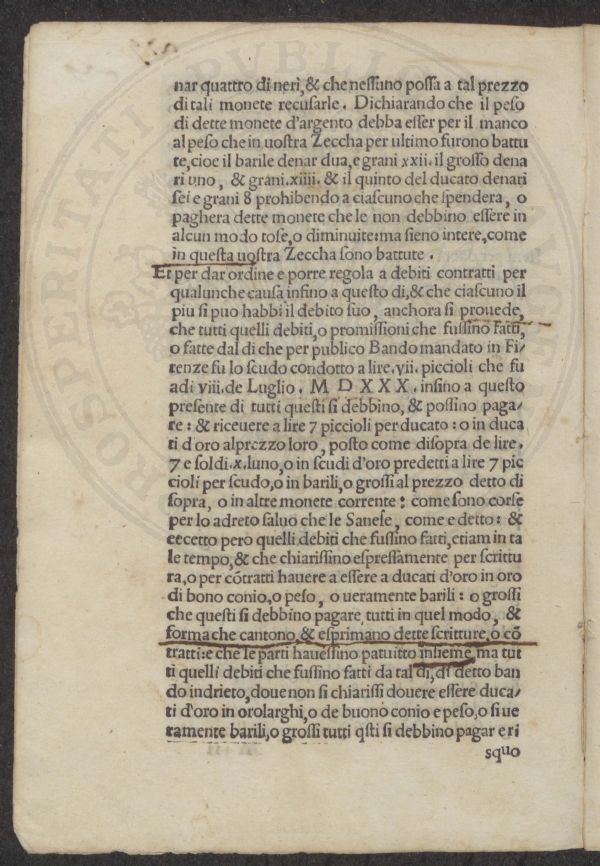 nar quattro di neri, & che nessuno possa a tal prezzo
di tali monete recusarle. Dichiarando che il peso
di dette monete d'argento debba esser per il manco
al peso che in uostra Zeccha per ultimo furono battu
te, cioe il barile denar dua, e grani xxii. il grosso dena
ri uno, & grani.xiiii. & il quinto del ducato denari
sei e grani 8 prohibendo a ciascuno che spendera, o
paghera dette monete che le non debbino essere in
alcun modo tose, o diminuite: ma sieno intere, come
in questa uostra Zeccha sono battute.
Et per dar ordine e porre regola a debiti contratti per
qualunche causa insino a questo di, & che ciascuno il
piu si puo habbi il debito suo, anchora si prouede,
che tutti quelli debiti, o promissioni che fussino fatti,
o fatte dal di che per publico Bando mandato in Fi/
renze fu lo scudo condotto a lire.vii. piccioli che fu
adi viii. de Luglio. M D X X X. insino a questo
presente di tutti questi si debbino, & possino paga/
re: & riceuere a lire 7 piccioli per ducato: o in duca
ti d'oro alprezzo loro, posto come disopra de lire.
7 e soldi.x.luno, o in scudi d'oro predetti a lire 7 pic
cioli per scudo, o in barili, o grossi al prezzo detto di
sopra, o in altre monete corrente: come sono corse
per lo adreto saluo che le Sanese, come e detto: &
eccetto pero quelli debiti che fussino fatti, etiam in ta
le tempo, & che chiarissino espressamente per scrittu
ra, o per cõtratti hauere a essere a ducati d'oro in oro
di bono conio, o peso, o ueramente barili: o grossi
che questi si debbino pagare tutti in quel modo, &
forma che cantono, & esprimano dette scritture, o cõ
tratti: e che le parti hauessino patuitto insieme, ma tut
ti quelli debiti che fussino fatti da tal di, di detto ban
do indrieto, doue non si chiarissi douere essere duca/
ti d'oro in orolarghi, o de buono conio e peso, o si ue
ramente barili, o grossi tutti q̃sti si debbino pagar e ri
squo